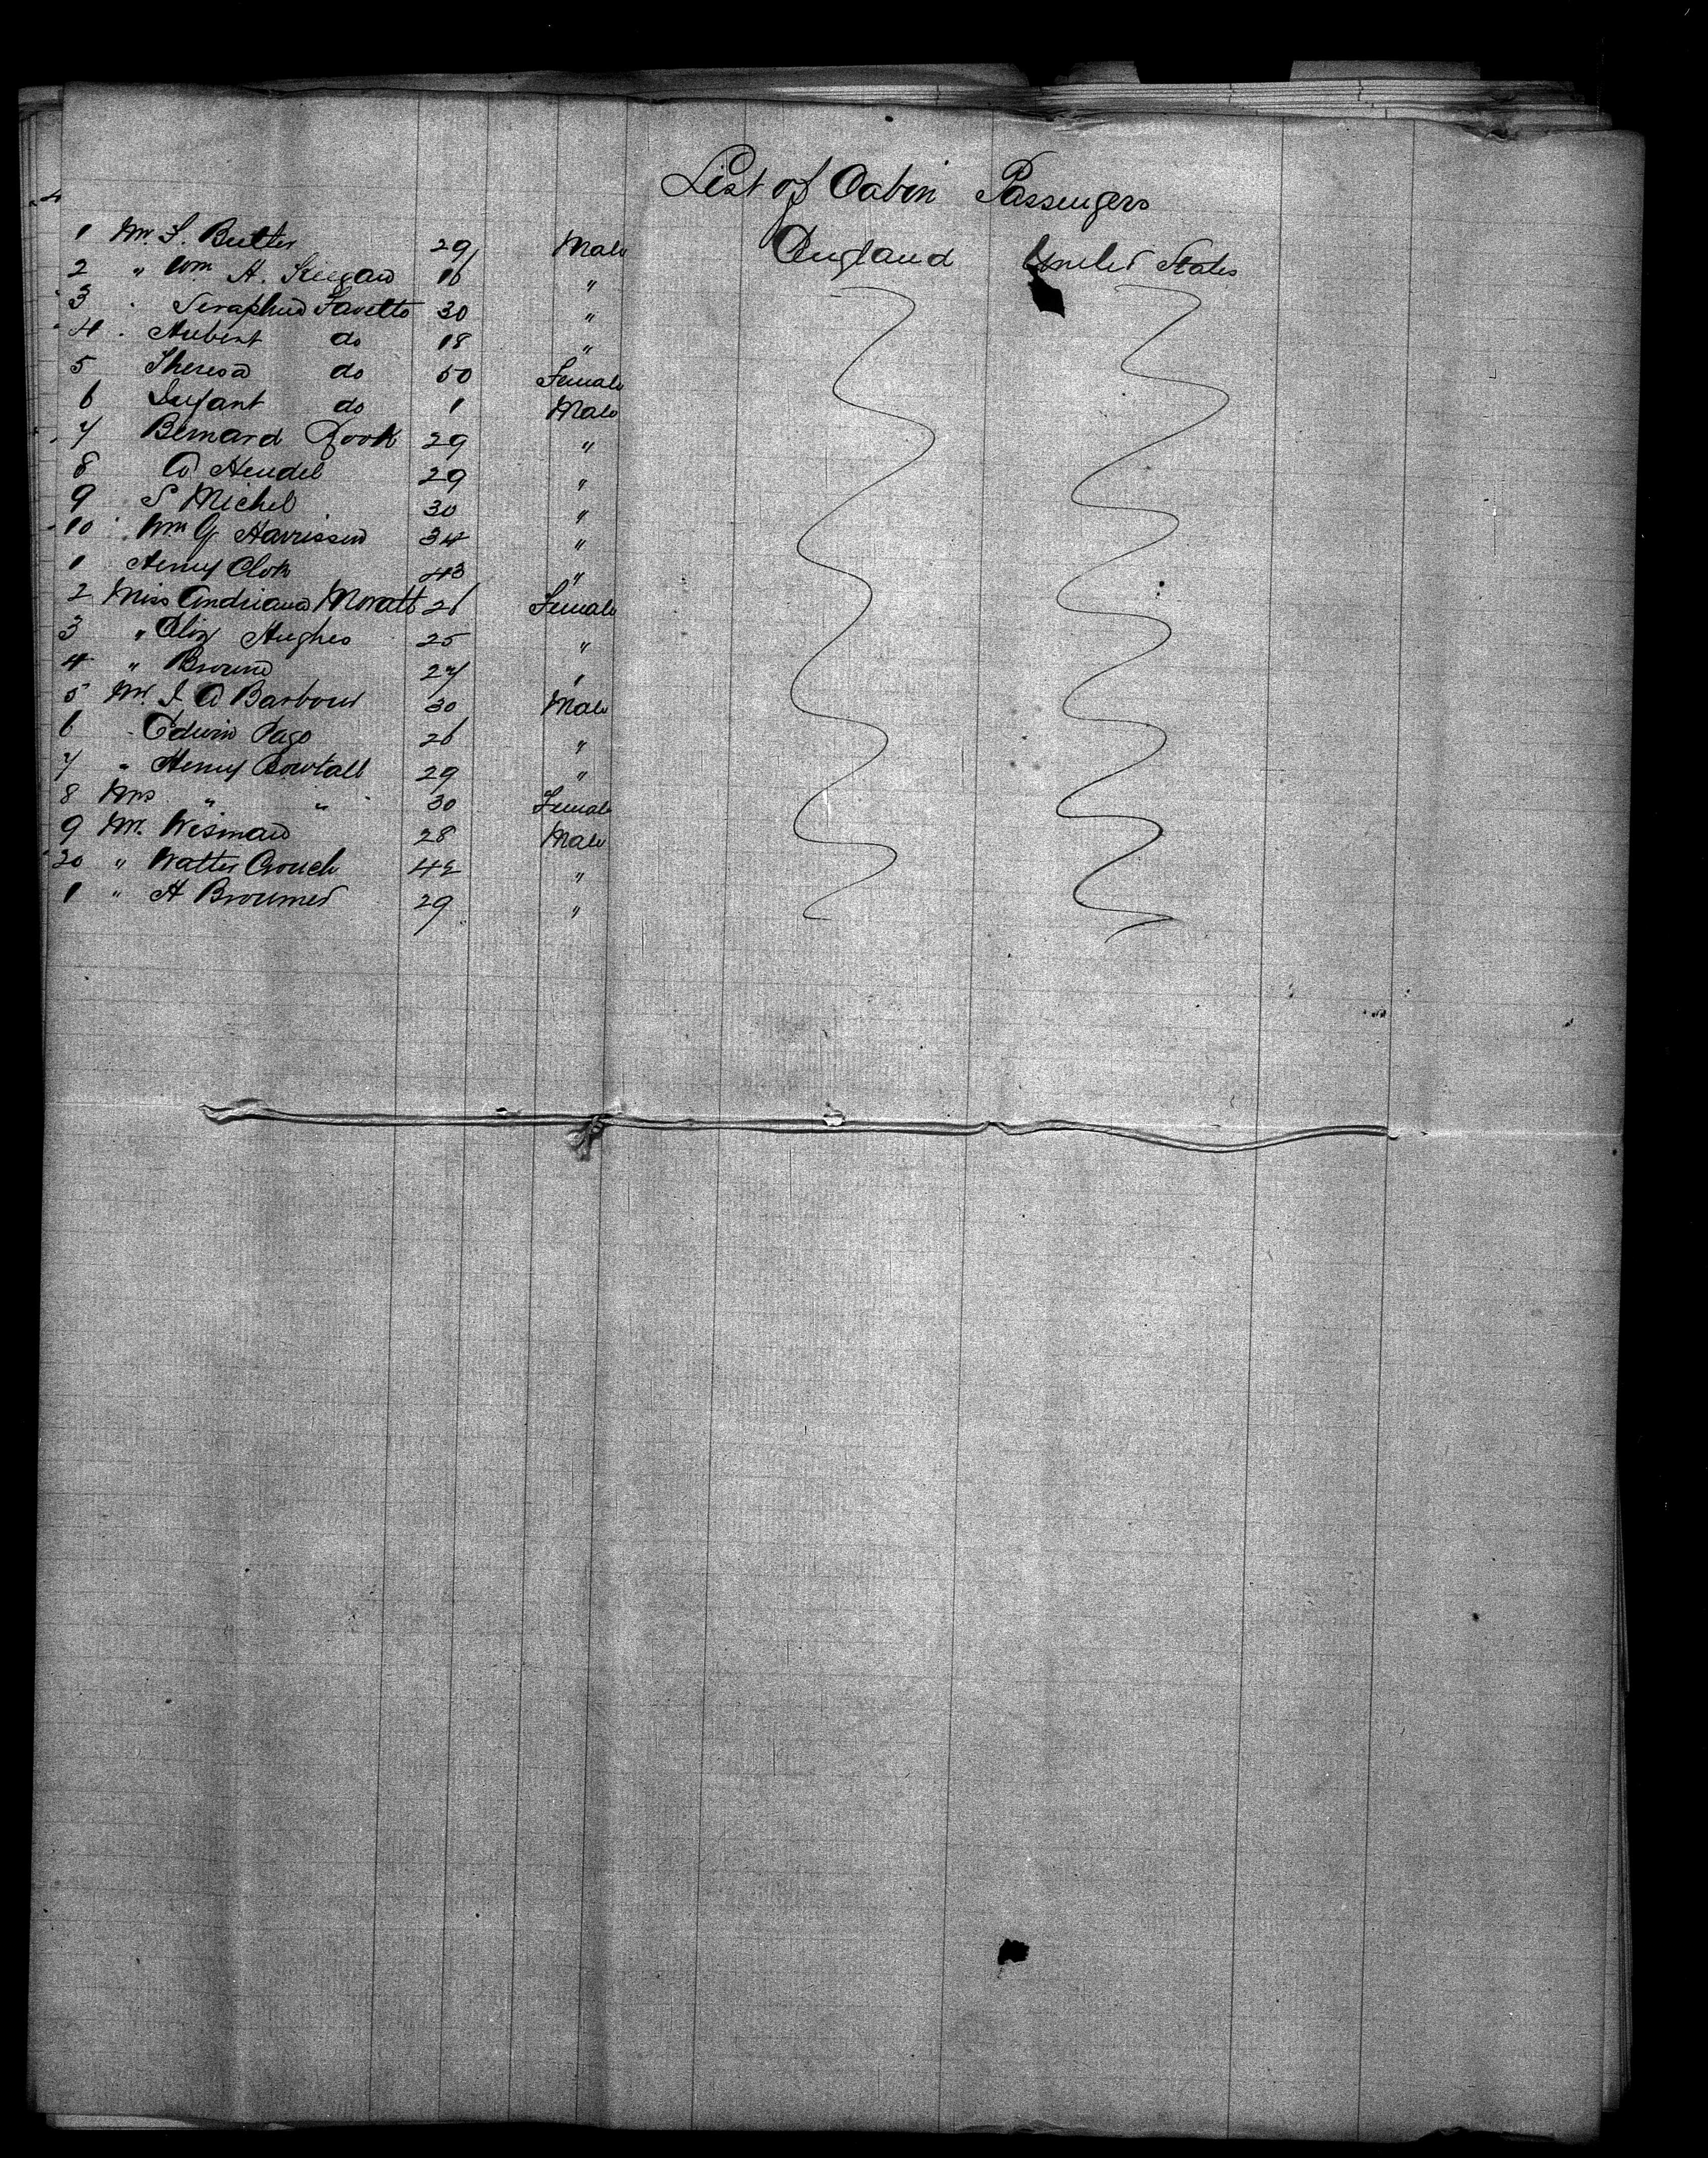 List of Cabin Passengers
1 Mr. S. Butler 29 Male England United States
2 " Wm A. 16 "
3 Seraphino Favetto 30 "
4 Aubert do 18 "
5 Theresa do 50 Female
6 Infant do 1 Male
7 Bernard Rook 29 "
8 A Hendel 29 "
9 S Michel 30 "
10 Wm G Harrisson 34 "
1 Henry Clok 43 "
2 Miss Andriana Moratt 26 Female
3 " Eliz Hughes 25 "
4 " Browne 27 "
5 Mr. J A Barbour 30 Male
6 Edwin Page 26 "
7 " Henry Bowtall 29 "
8 Mrs " " 30 Female
9 Mr. Wisman 28 Male
20 " Walter Crouch 42 "
1 " A 29 "